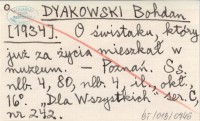 DYAKOWSKI Bohdan
[1934]. O świstaku, który
już za życia mieszkał w
muzeum. — Poznań. Ss.
nlb 4, 80, nlb 4, il., okł,
16°. „Dla Wszystkich” ser. C,
nr 242.
bI /018/0946